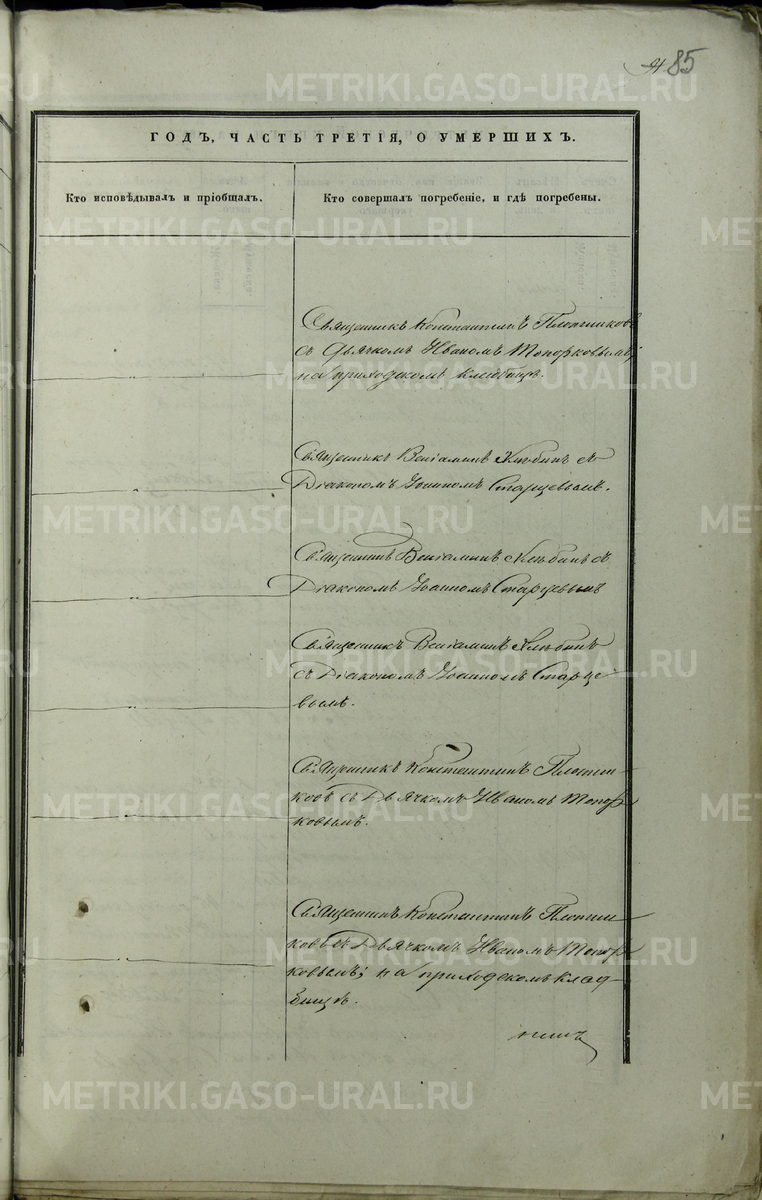 85
METRIKI.GASO-URAL.RU
ГОДЪ, ЧАСТЬ ТРЕТІЯ, О УМЕРШИХЪ.
Кто исповѣдывалъ и пріобщалъ.
Кто совершалъ погребеніе, и гдѣ погребены.
Священникъ Константинъ Плотниковъ
съ Дьячкомъ Иваномъ Топорковымъ;
на приходскомъ
Священникъ Веніаминъ Хлѣбинъ съ
Діакономъ Іоанномъ Старцевымъ.
Священникъ Веніаминъ Хлѣбинъ съ
Діакономъ Іоанномъ Старцевымъ
Священникъ Веніаминъ Хлѣбинъ
съ Діакономъ Іоанномъ Старце
вымъ.
Священникъ Константинъ Плотни-
ковъ съ Дьячкомъ Иваномъ Топор
ковымъ.
Священникъ Константинъ Плотни
ковъ съ Дьячкомъ Иваномъ Топор
ковымъ; на приходскомъ клад-
бищѣ.